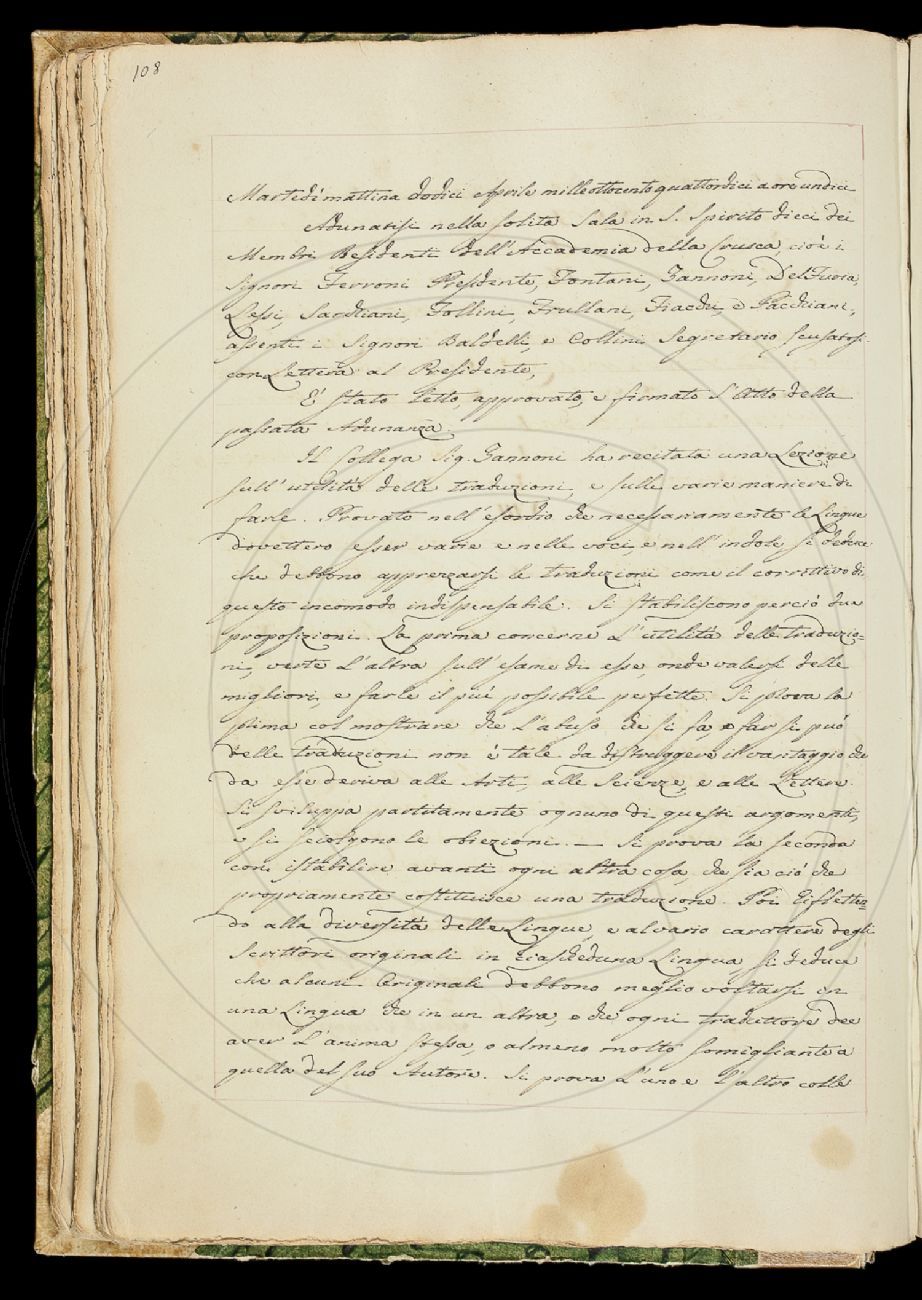 108
Martedì mattina dodici Aprile milleottocentoquattordici a ore undici
Adunatisi nella solita Sala in S. Spirito dieci dei
Membri Residenti dell'Accademia della Crusca, cioè i
Signori Ferroni Presidente, Fontani, Zannoni, Del Furia,
Lessi, Sarchiani, Follini, Frullani, Fiacchi, e Pacchiani,
assenti i Signori Baldelli, e Collini Segretario scusatosi
con Lettera al Presidente,
È stato letto, approvato, e firmato l'Atto della
passata Adunanza.
Il Collega Sig. Zannoni ha recitata una Lezione
sull'utilità delle traduzioni, e sulle varie maniere di
farle. Provato nell'esordio che necessariamente le Lingue
dovettero esser varie e nelle voci, e nell'indole si deduce
che debbono apprezzarsi le traduzioni come il correttivo di
questo incomodo indispensabile. Si stabiliscono perciò due
proposizioni. La prima concerne l'utilità delle traduzio-
ni, verte l'altra sull'esame di esse, onde valersi delle
migliori, e farle il più possibile perfette. Si prova la
prima col mostrare che l'abuso che si fa, e far si può
delle traduzioni non è tale da distruggere il vantaggio che
da esse deriva alle Arti, alle Scienze, e alle Lettere.
Si sviluppa partitamente ognuno di questi argomenti,
e si sciolgono le obiezioni. — Si prova la seconda
con istabilire avanti ogni altra cosa, che sia ciò che
propriamente costituisce una traduzione. Poi riflетten=
do alla diversità delle Lingue, e al vario carattere degli
Scrittori originali in ciascheduna Lingua, si deduce
che alcuni Originali debbono meglio voltarsi in
una Lingua che in un altra, e che ogni traduttore dee
aver l'anima stessa, o almeno molto somigliante a
quella del suo Autore. Si prova l'uno e l'altro colle